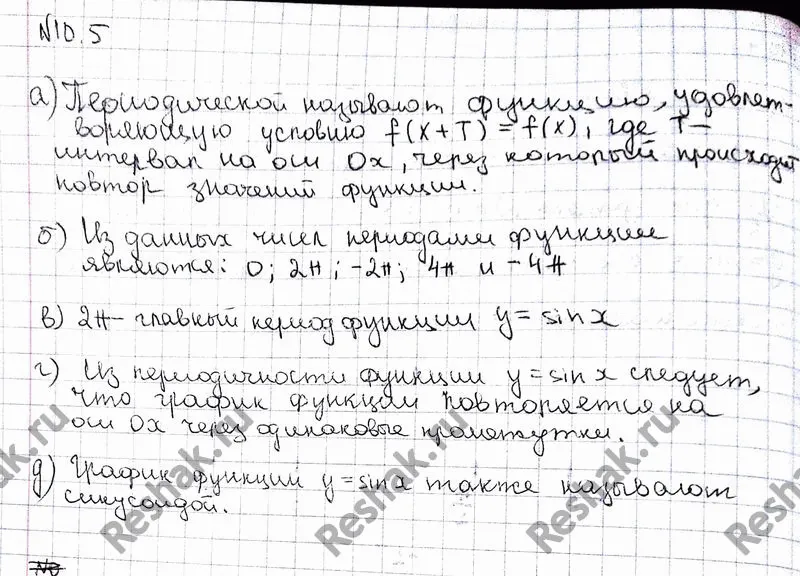 N10.5
а) Периодической называют функцию, удовлет-
воряющую условию f(x+T)=f(x), где T-
интервал на оси Ox, через который происходит
повтор значений функции.
б) Из данных чисел периодами функции
являются: 0; 2π; -2π; 4π и -4π
в) 2π- главный период функции y=sinx
г) Из периодичности функции y=sinx следует,
что график функции повторяется на
оси Ox через одинаковые промежутки.
д) График функции y=sinx также называют
синусоидой.
Reshak.ru
Reshak.ru
Reshak.ru
Reshak.ru